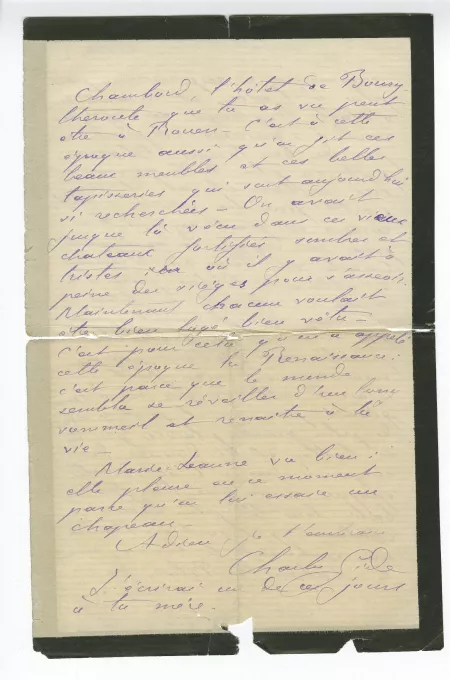 Chambord, l'hôtel de Bourg
theroulde que tu as vu peut
être à Rouen - C'est à cette
époque aussi qu'on fit ces
beaux meubles et ces belles
tapisseries qui sont aujourd'hui
si recherchées - On avait
jusque là vécu dans ces vieux
chateaux fortifiés sombres et
tristes où il y avait à
peine des sièges pour s'asseoir.
Maintenant chacun voulait
être bien logé, bien vêtu -
C'est pour cela qu'on a appelé
cette époque la Renaissance :
c'est parce que le monde
sembla se réveiller d'un long
sommeil et renaître à la
vie -
Marie-Jeanne va bien :
elle pleure en ce moment
parce qu'on lui essaie un
chapeau -
Adieu, je t'embrasse
Charles Gide
J'écrirai un de ces jours
à ta mère.